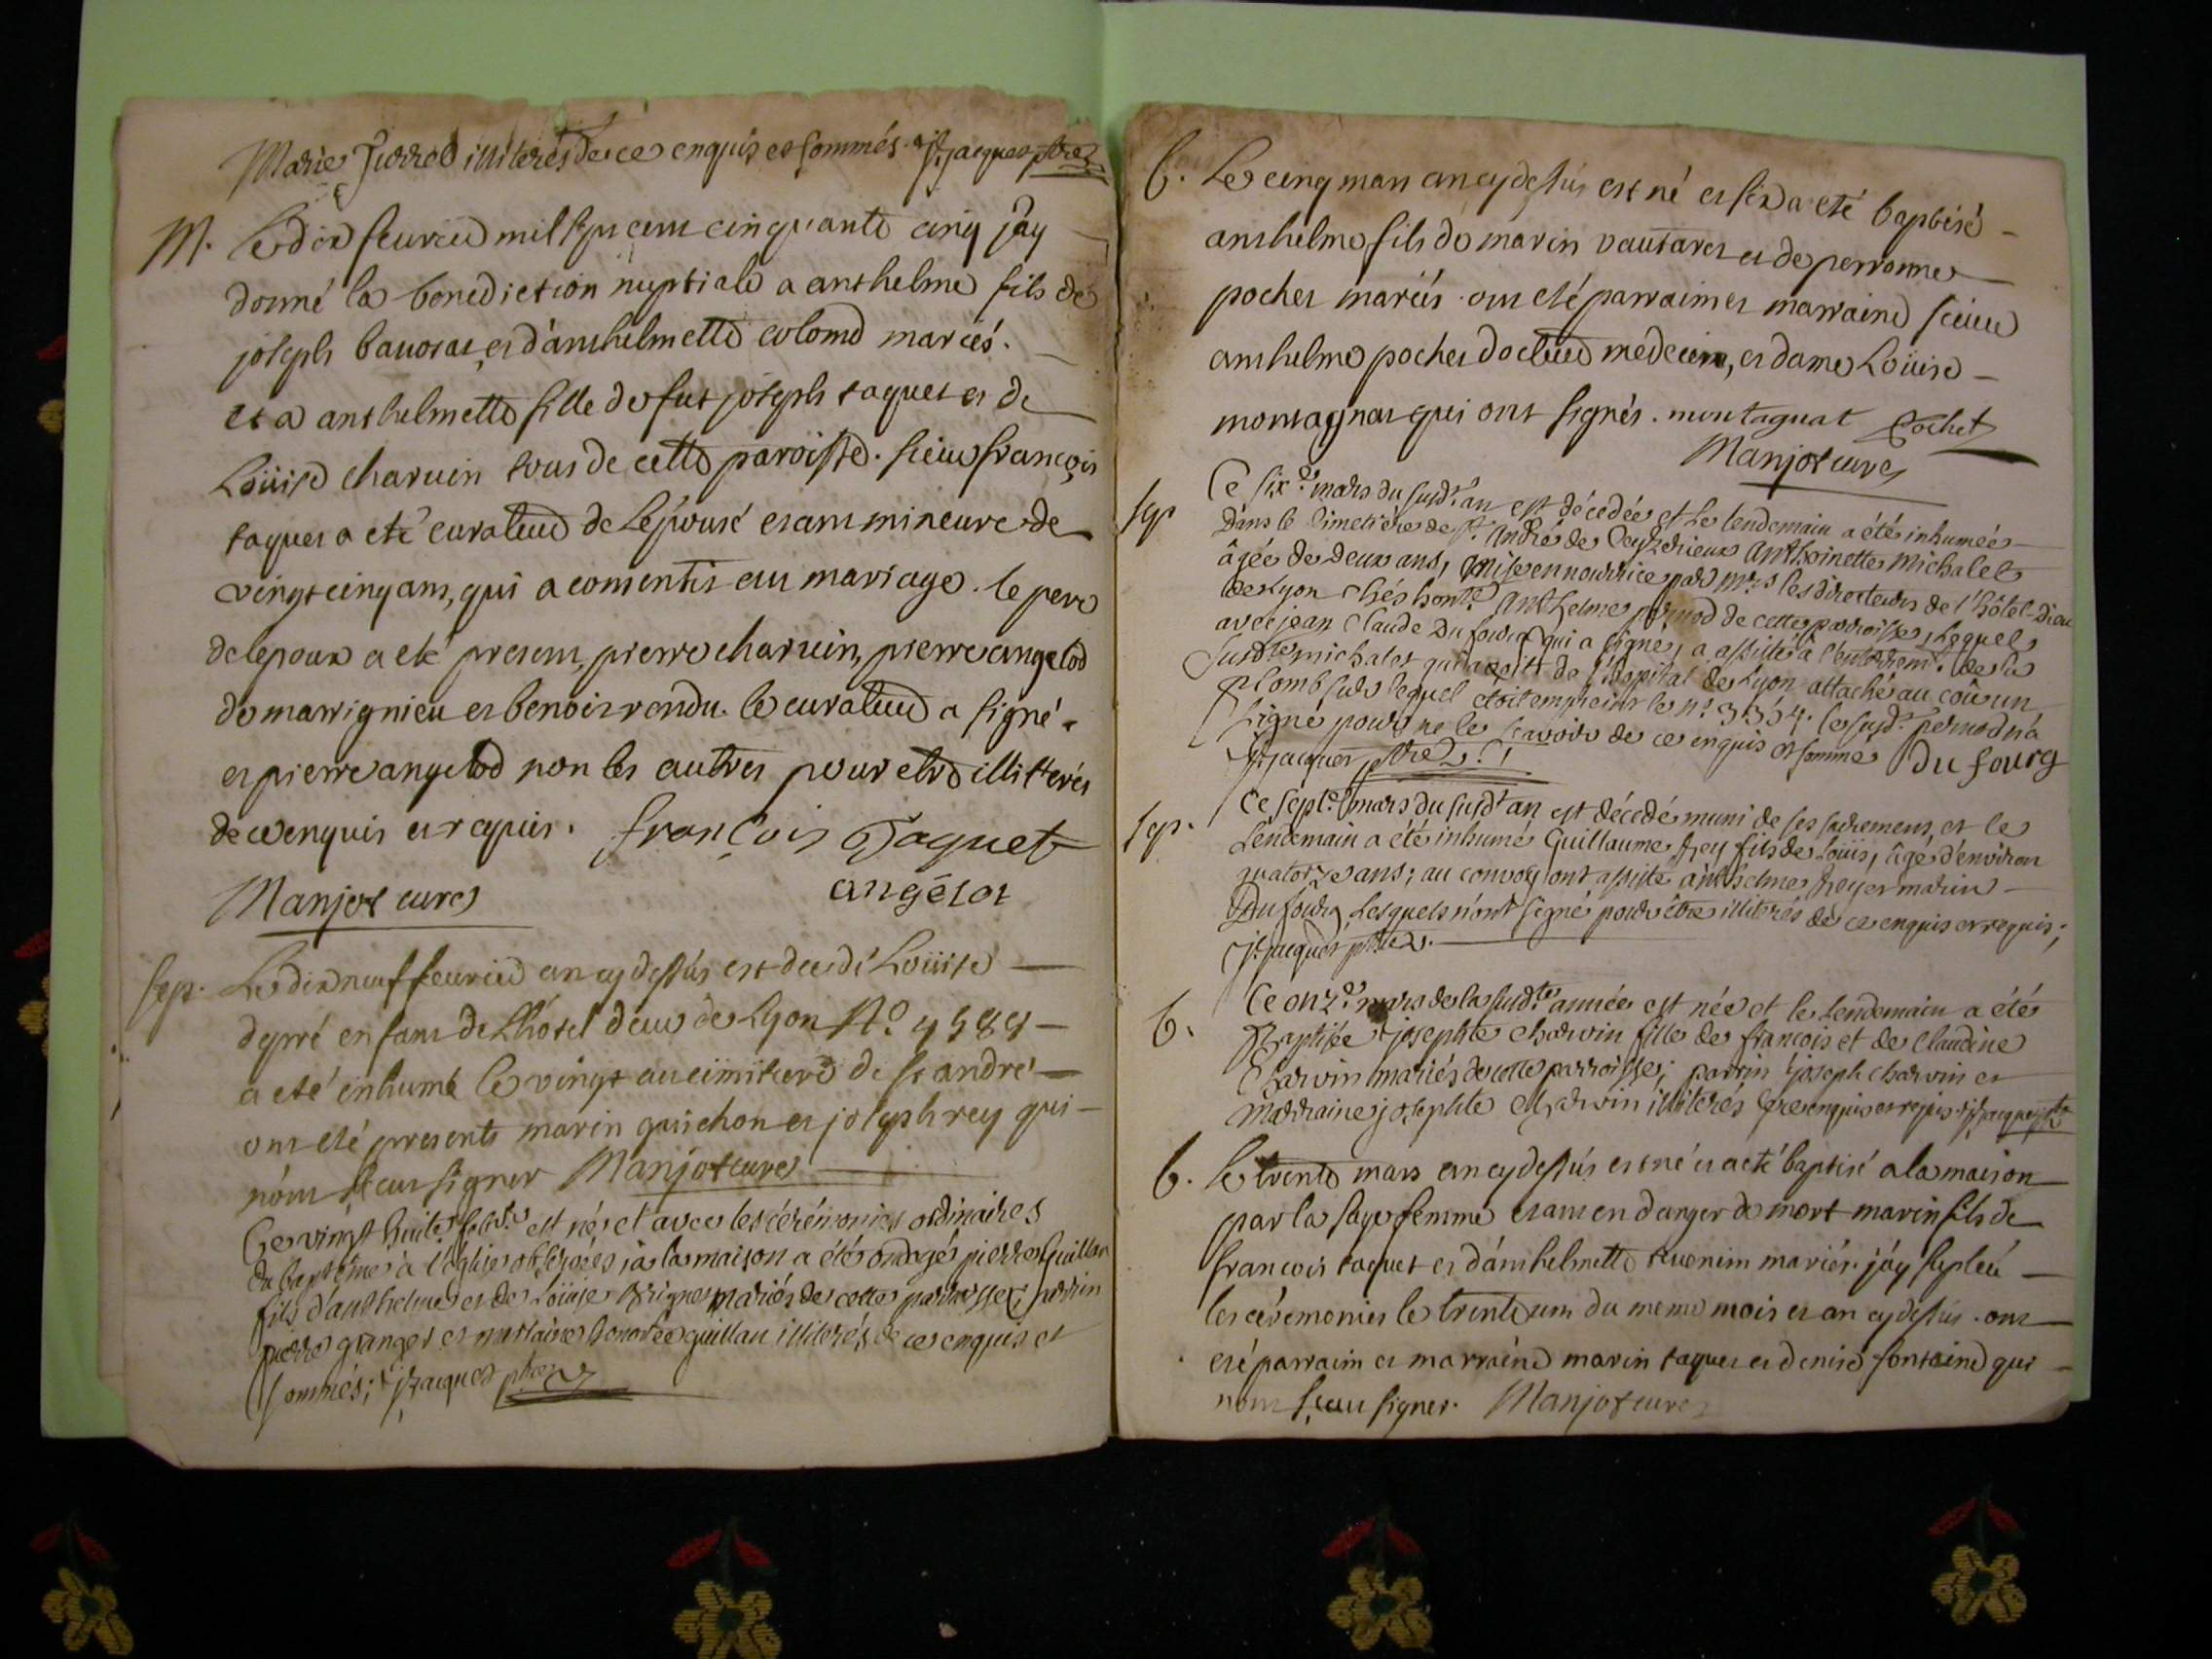 Marie illiterés de ce enquis et sommés. jacques ptre
M. Le dix feuvrier mil sept cent cinquante cinq jay
donné la benediction nuptiale a anthelme fils de
joseph bavosat et d'anthelmette colomb mariés.
et a anthelmette fille de fut joseph taquet et de
Loüise charvin tous de cette paroisse. sieur françois
taquet a eté curateur de Lépouse etant mineure de
vingt cinq ans, qui a consentis au mariage. le pere
de lepoux a eté present, pierre charvin, pierre angelod
de marrignieu et benoit rendu. le curateur a signé
et pierre angelod non les autres pour etre illitterés
de ce enquis et requis. françois Taquet
Manjot curé angélot
sep. Le dix neuf feuvrier an cy dessús est decedé Loüise
depré enfant de Lhótel dieu de Lyon No 4584
a eté inhumé le vingt au cimitiere de st andré
ont eté presents marin guichon et joseph rey qui
n'ont sceu signer Manjot curé
Ce vingt huite febr. est né et avec les cérémonies ordinaires
du baptême à l'église observées, à la maison a été ondoyé pierre Guillau
fils d'anthelme et de Loüise mariés de cette parroisse; parrin
pierre granger et marraine honorée guillau illiterés de ce enquis et
sommés; jacques ptre
b. Le cinq mars an cy dessus est né et six a eté baptisé
anthelme fils de marin vautaret et de perronne
pochet mariés. ont eté parrain et marraine sieur
anthelme pochet docteur medecin, et dame Loüise
montagnat qui ont signés. montagnat Pochet
Manjot curé
sep Ce sixe mars du susdt an est décedée et le lendemain a été inhumée
dans le cimetière de st. André de Ceyzerieux Anthoinette Michalet
âgée de deux ans, mise en nourrice par mrs les directeurs de l'hôtel-Dieu
de Lyon chés honte Anthelme pernod de cette parroisse, Lequel
avec jean Claude Dufourg qui a signé, a assisté à l'enterremt. de la
susdte michalet qui avoit de l'hospital de Lyon attaché au coû un
plomb sur lequel étoit empreint le no. 3354. le susdt. pernod n'a
signé pour ne le sçavoir de ce enquis et sommé Du fourg
jacques ptre
sep. Ce septe mars du susdt an est décedé muni de ses sacremens, et le
lendemain a été inhumé Guillaume Rey fils de Loüis, âgé d'environ
quatorze ans; au convoy ont assisté anthelme Rey et marin
Dufourg Lesquels n'ont signé pour être illiterés de ce enquis et requis;
jacques ptre.
b. Ce onze mars de la susdte année est née et le lendemain a été
Baptisée josephte charvin fille de françois et de claudine
Charvin mariés de cette parroisse; parrin joseph charvin et
marraine josephte charvin illiterés de ce enquis et requis. jacques ptre
b. Le trente mars an cy dessús est né et a eté baptisé a la maison
par la sage femme etant en danger de mort marin fils de
francois taquet et d'anthelmette mariés. j'ay supleé
les cérémonies le trente un du meme mois et an cy dessus. ont
eté parrain et marraine marin taquet et denise fontaine qui
n'ont sceu signer. Manjot curé